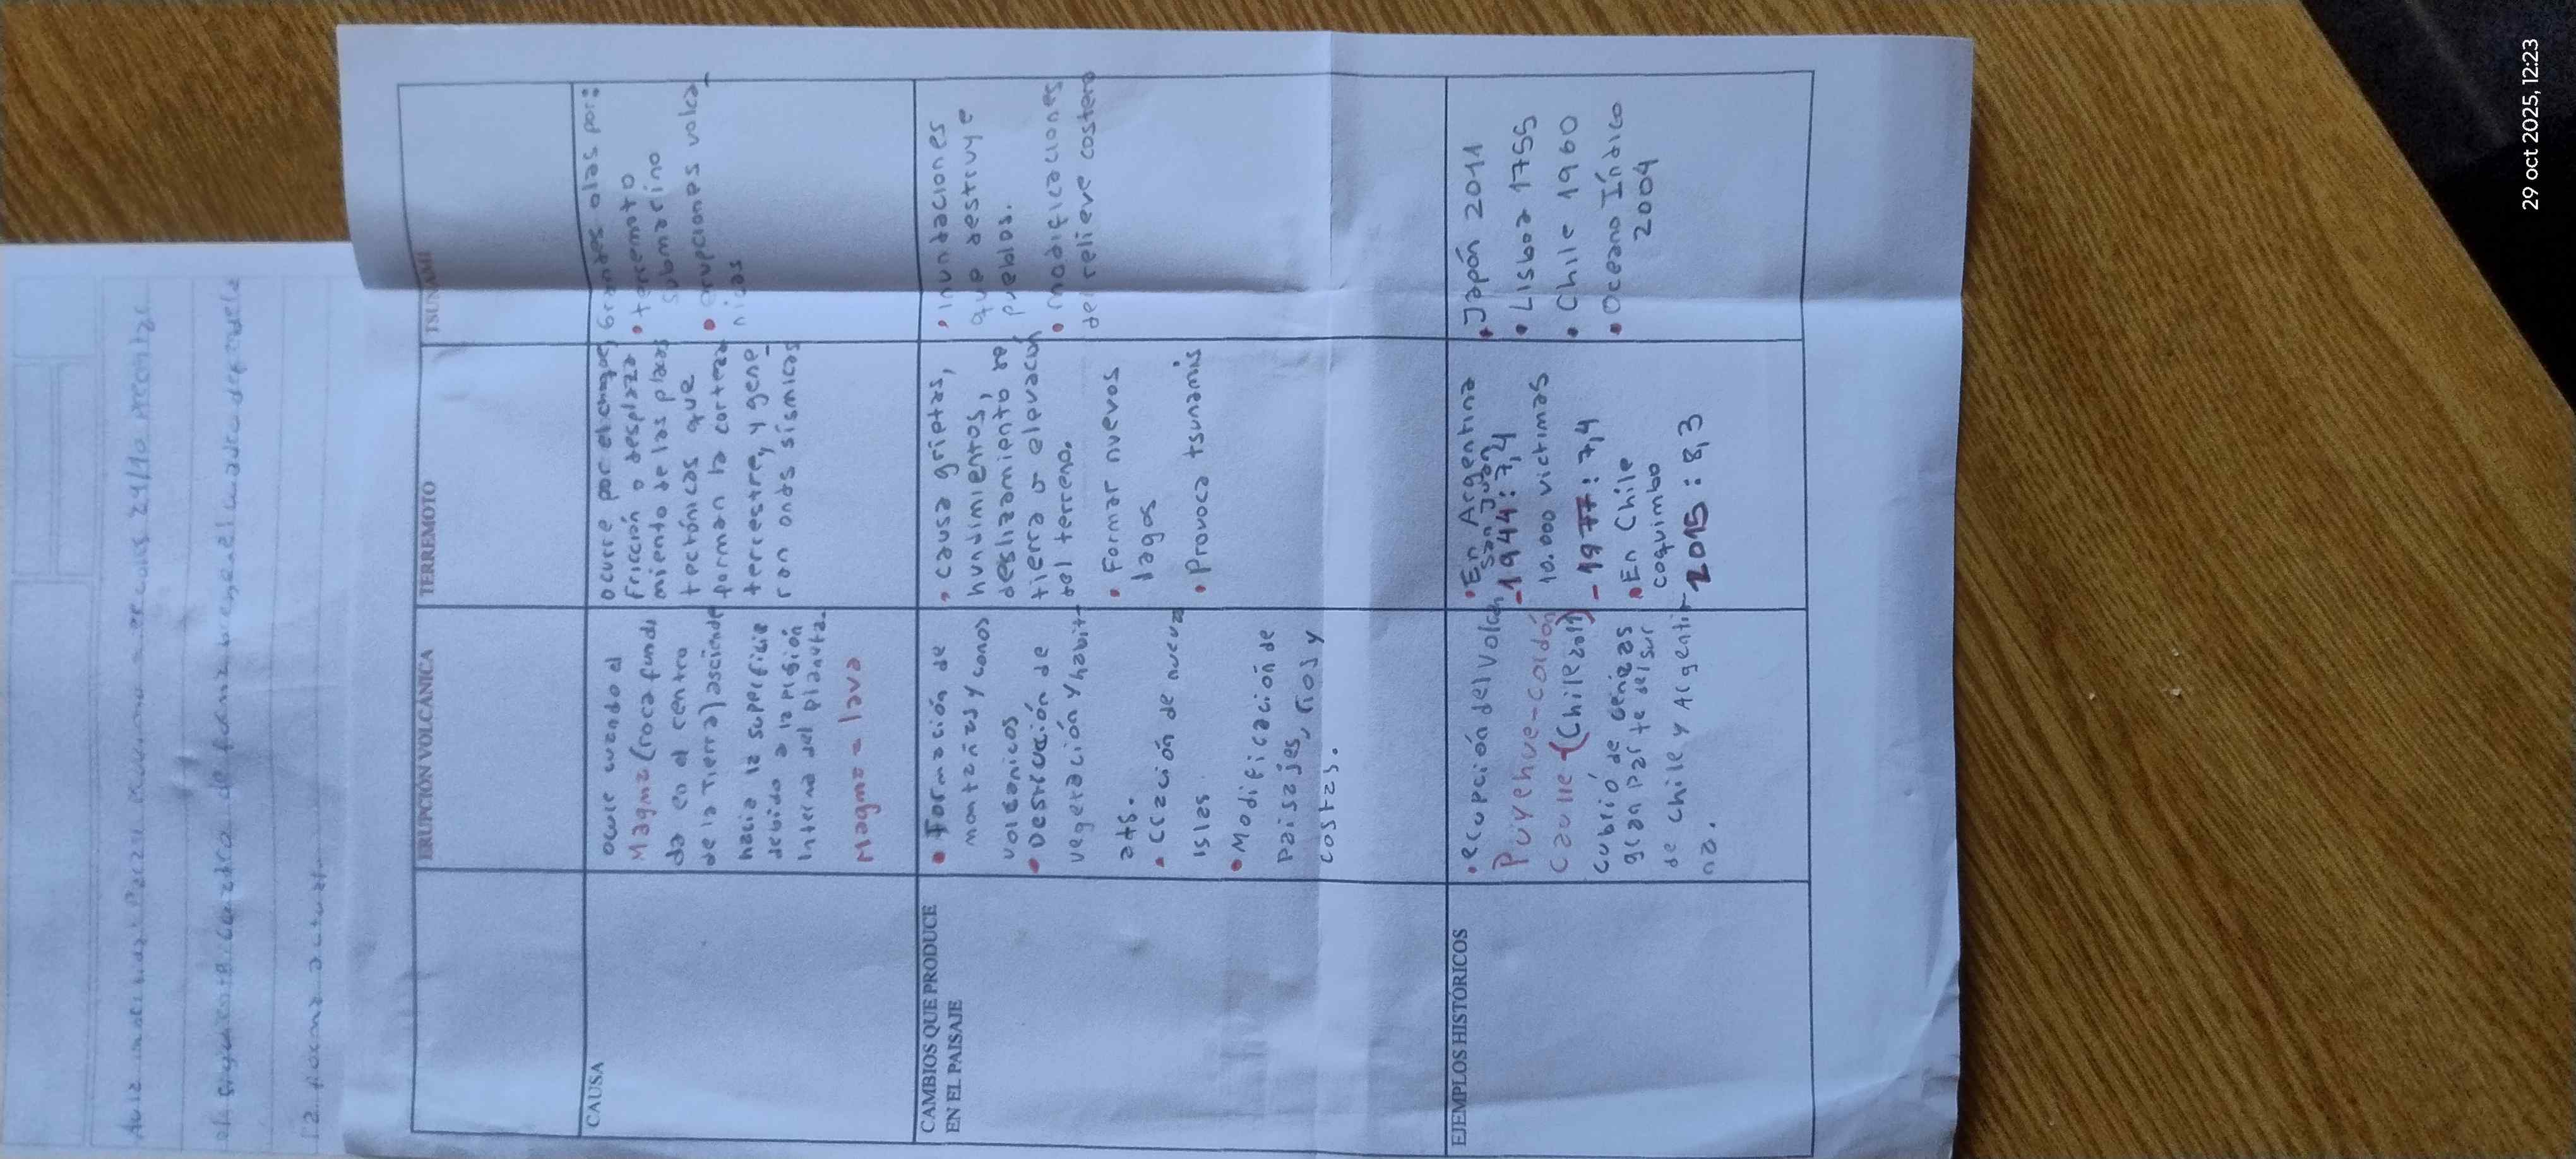 ERUPCIÓN VOLCÁNICA
TERREMOTO
TSUNAMI
CAUSA
ocurre cuando el
Magma (roca fundi
da en el centro
de la Tierra) asciende
hacia la superficie
debido a la
interna del
Magma = lava
ocurre por el choque,
fricción o desplaza
miento de las placas
tectónicas que
forman la corteza
terrestre, y gene_
ran ondas sísmicas
Grandes olas por:
• terremoto
submarino
• erupciones volca_
nicas
CAMBIOS QUE PRODUCE
EN EL PAISAJE
• Formación de
montañas y conos
volcanicos
• Destrucción de
vegetación y habit-
ats.
• creación de nueva
islas
• Modificación de
paisajes, rios y
costas.
• causa grietas,
hundimientos,
deslizamiento de
tierra o elevación
del terreno.
• Formar nuevos
lagos
• Provoca tsunamis
• Inundaciones
que destruye
pueblos.
• modificaciones
del relieve costero
EJEMPLOS HISTÓRICOS
• erupción del Volcán
Puyehue-cordón
Caulle (Chile 2011)
cubrió de cenizas
gran parte del sur
de Chile y Argenti-
na.
• En Argentina
San Juan
-1944: 7,4
10.000 victimas
-1977: 7,4
• En Chile
coquimbo
2015: 8,3
• Japón 2011
• Lisboa 1755
• Chile 1960
• Oceano Índico
2004
29 oct 2025, 12:23